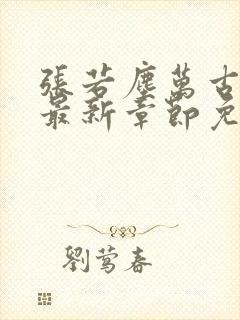 張若塵萬古
最新章節免
劉莺春